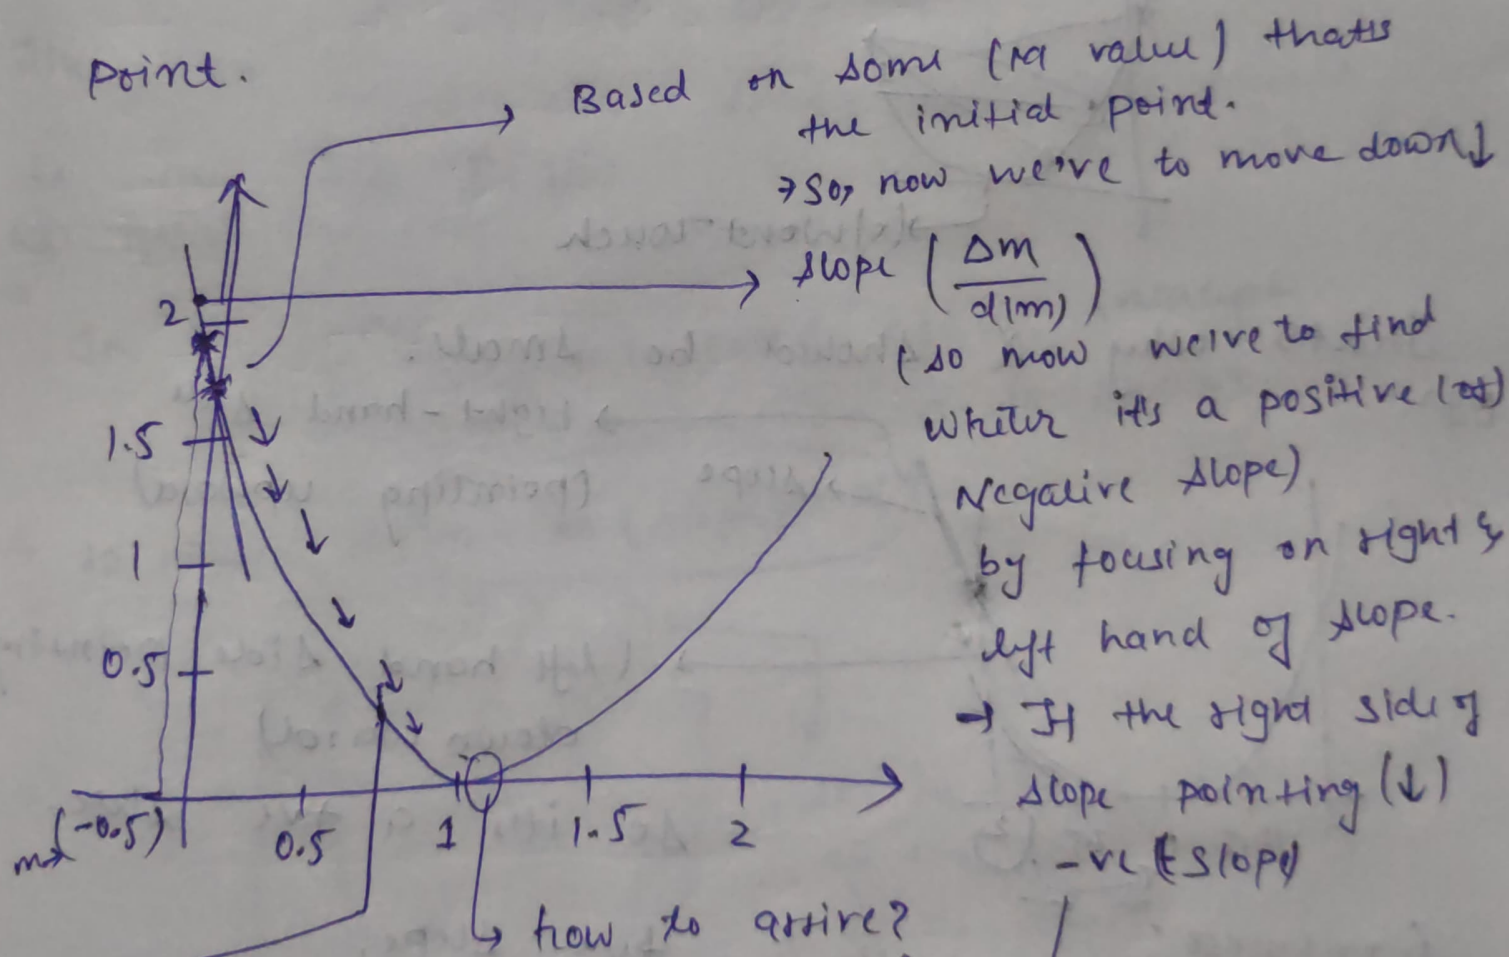 point.
Based on some (m value) that's
the initial point.
→ So, now we've to move down↓
slope (Δm/d(m))
(so now we've to find
wheter it's a positive (or)
Negative slope)
by focusing on right &
left hand of slope.
→ If the right side of
slope pointing (↓)
-ve slope
2
1.5
1
0.5
m→ (-0.5)
0.5
1
1.5
2
↳ how to arrive?